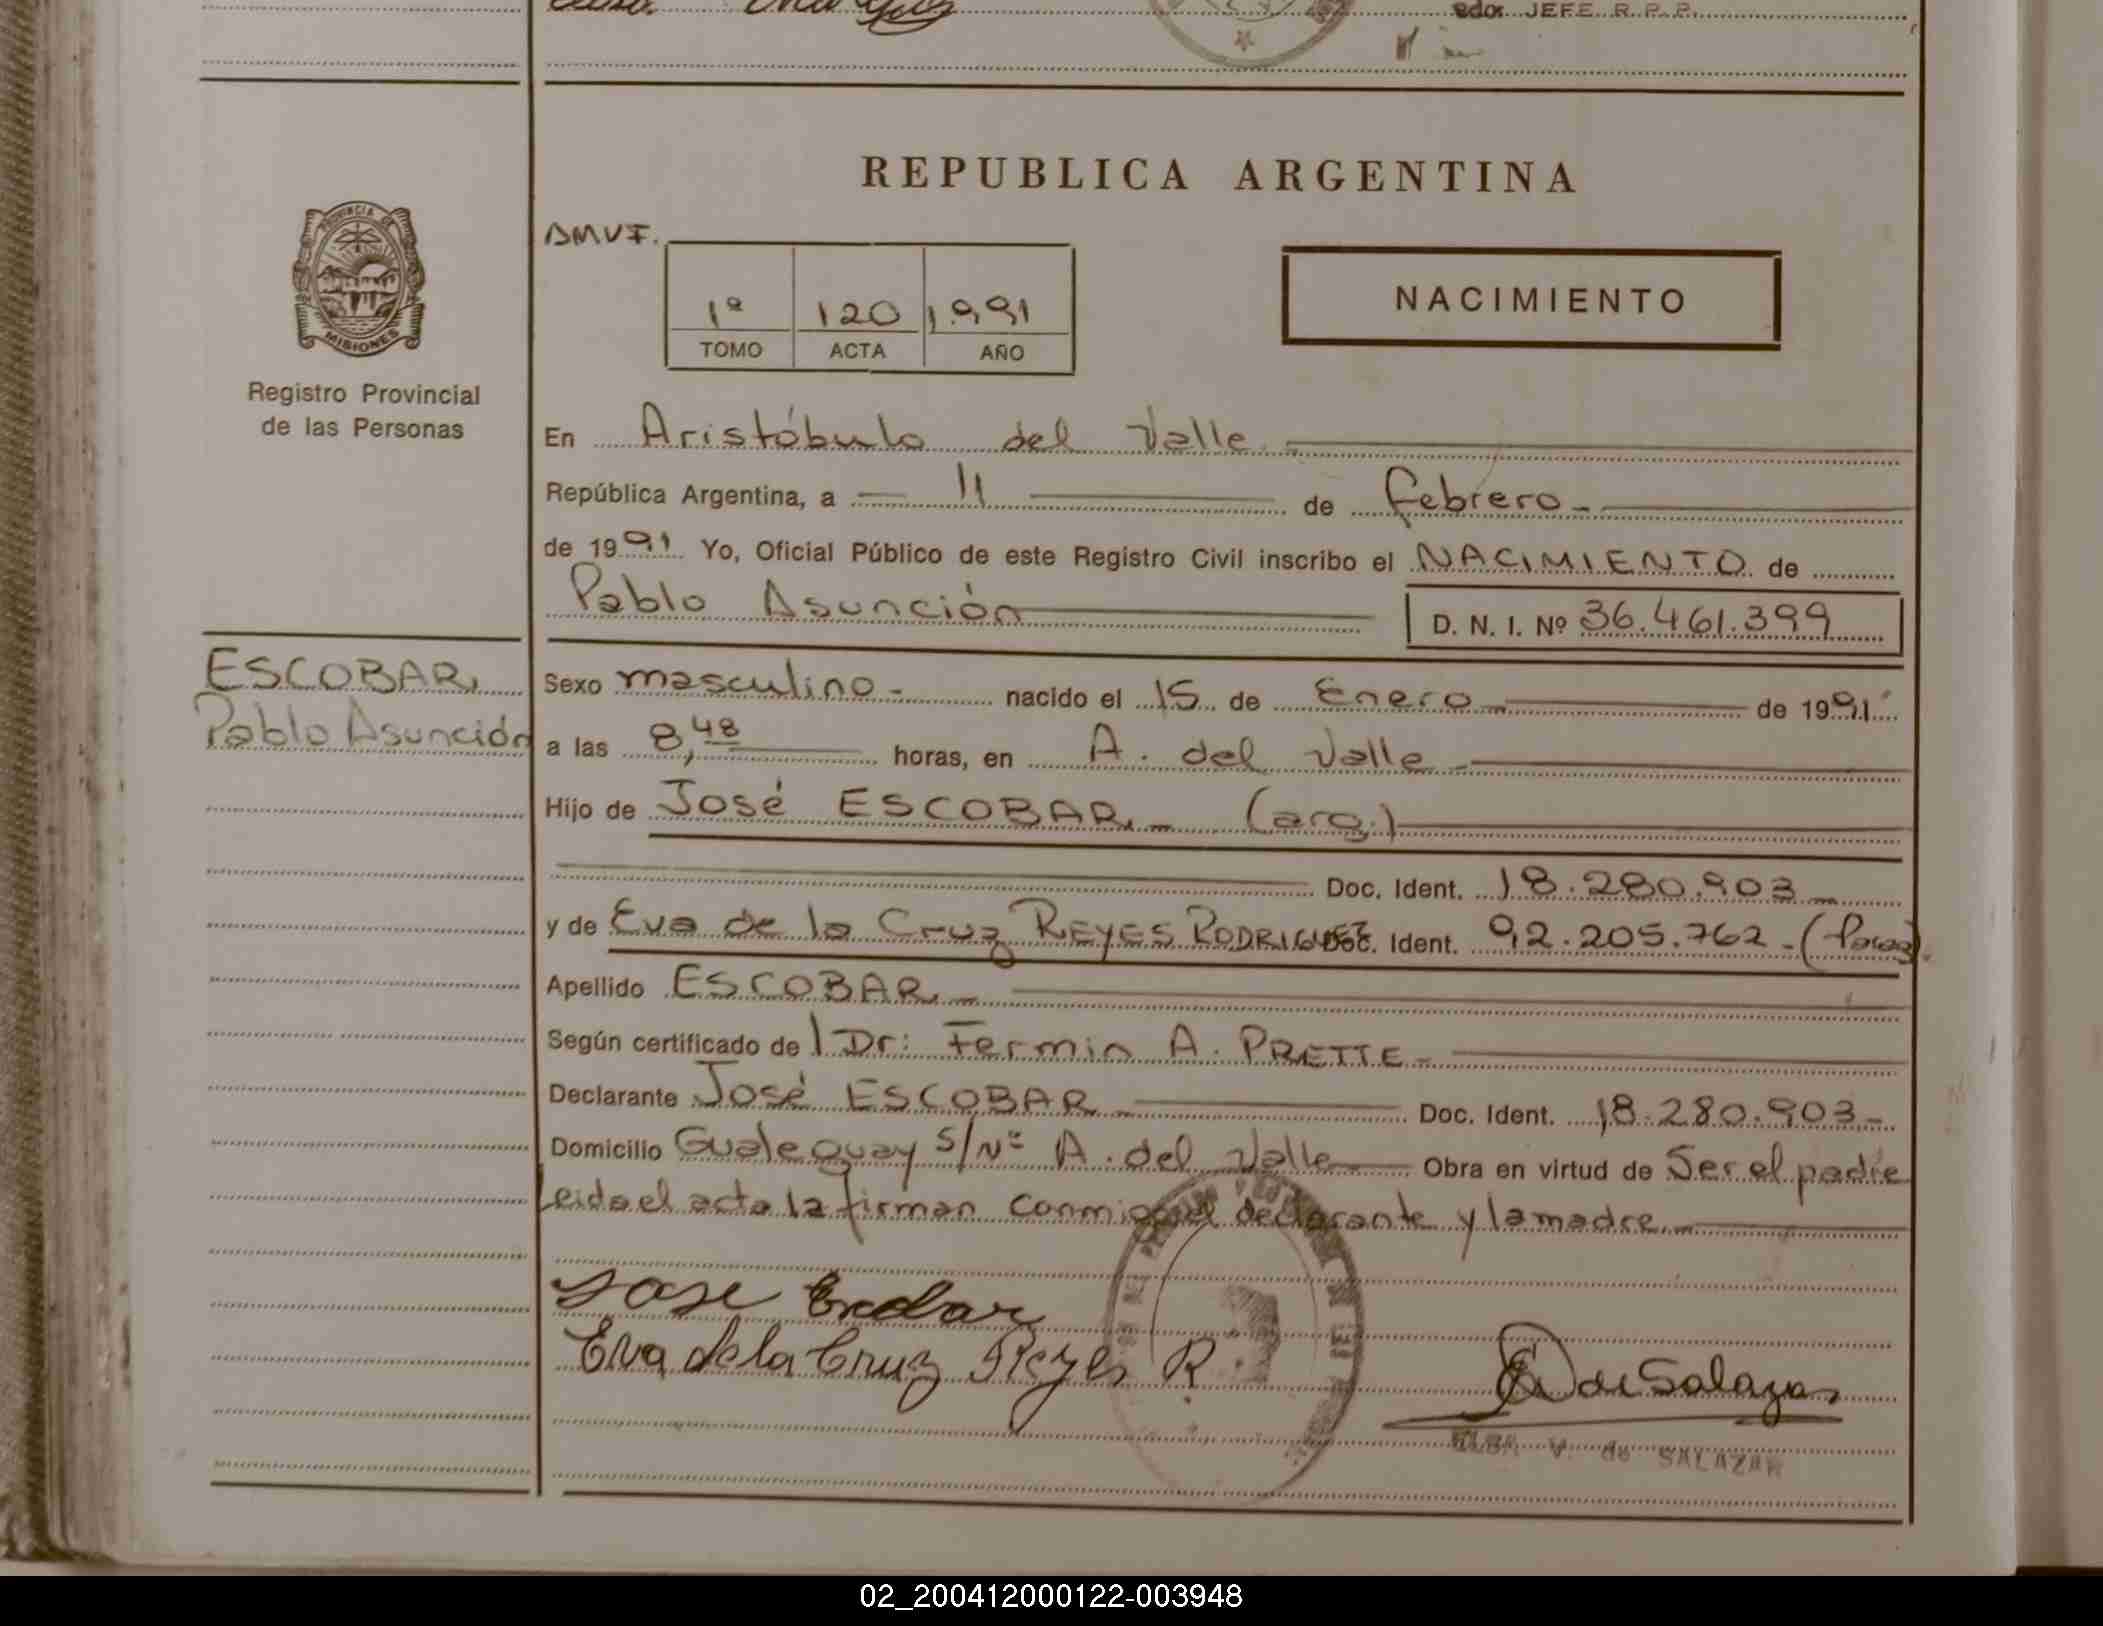 edor JEFE R. P. P.
REPUBLICA ARGENTINA
PROVINCIA DE
MISIONES
Registro Provincial
de las Personas
1º 120 1991
TOMO ACTA AÑO
NACIMIENTO
En Aristóbulo del Valle.
República Argentina, a 11 de febrero
de 1991 Yo, Oficial Público de este Registro Civil inscribo el NACIMIENTO de
Pablo Asunción
D. N. I. Nº 36.461.399
ESCOBAR,
Pablo Asunción
Sexo masculino.- nacido el 15 de Enero de 1991
a las 8,48 horas, en A. del Valle
Hijo de José ESCOBAR.- (arg.)
Doc. Ident. 18.280.903
y de Eva de la Cruz REYES RODRIGUEZ Doc. Ident. 92.205.762 -
Apellido ESCOBAR.-
Según certificado de l Dr: Fermin A. PRETTE-
Declarante José ESCOBAR Doc. Ident. 18.280.903-
Domicilio Gualeguay s/Nº A. del Valle Obra en virtud de Ser el padre
Leida el acta la firman conmigo el declarante y la madre.-
Jose Escobar
Eva de la Cruz Reyes R.
de Salazar
ELBA V. de SALAZAR
02_200412000122-003948